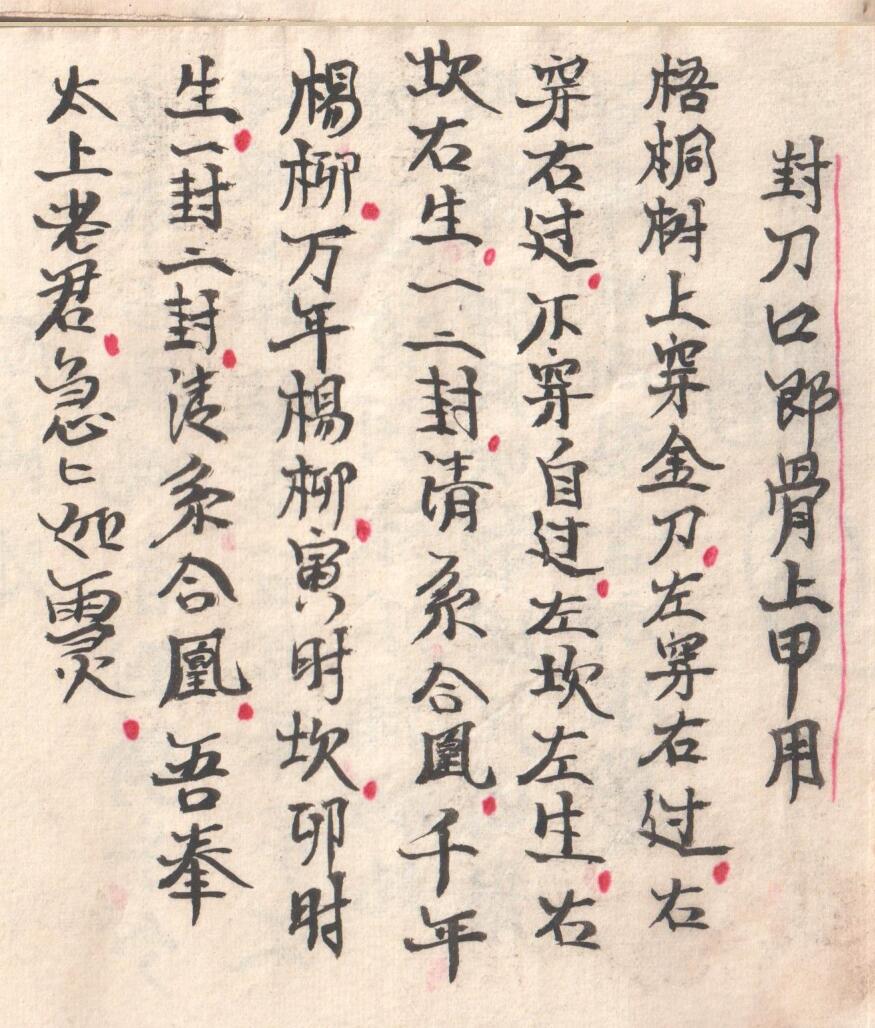 封刀口即骨上甲用
梧桐树上穿金刀左穿右过右
穿右过不穿自过左坎左生右
坎右生一二封清系合凰千年
楊柳万年楊柳寅时坎卯时
生一封二封清系合凰吾奉
太上老君急〻如灵